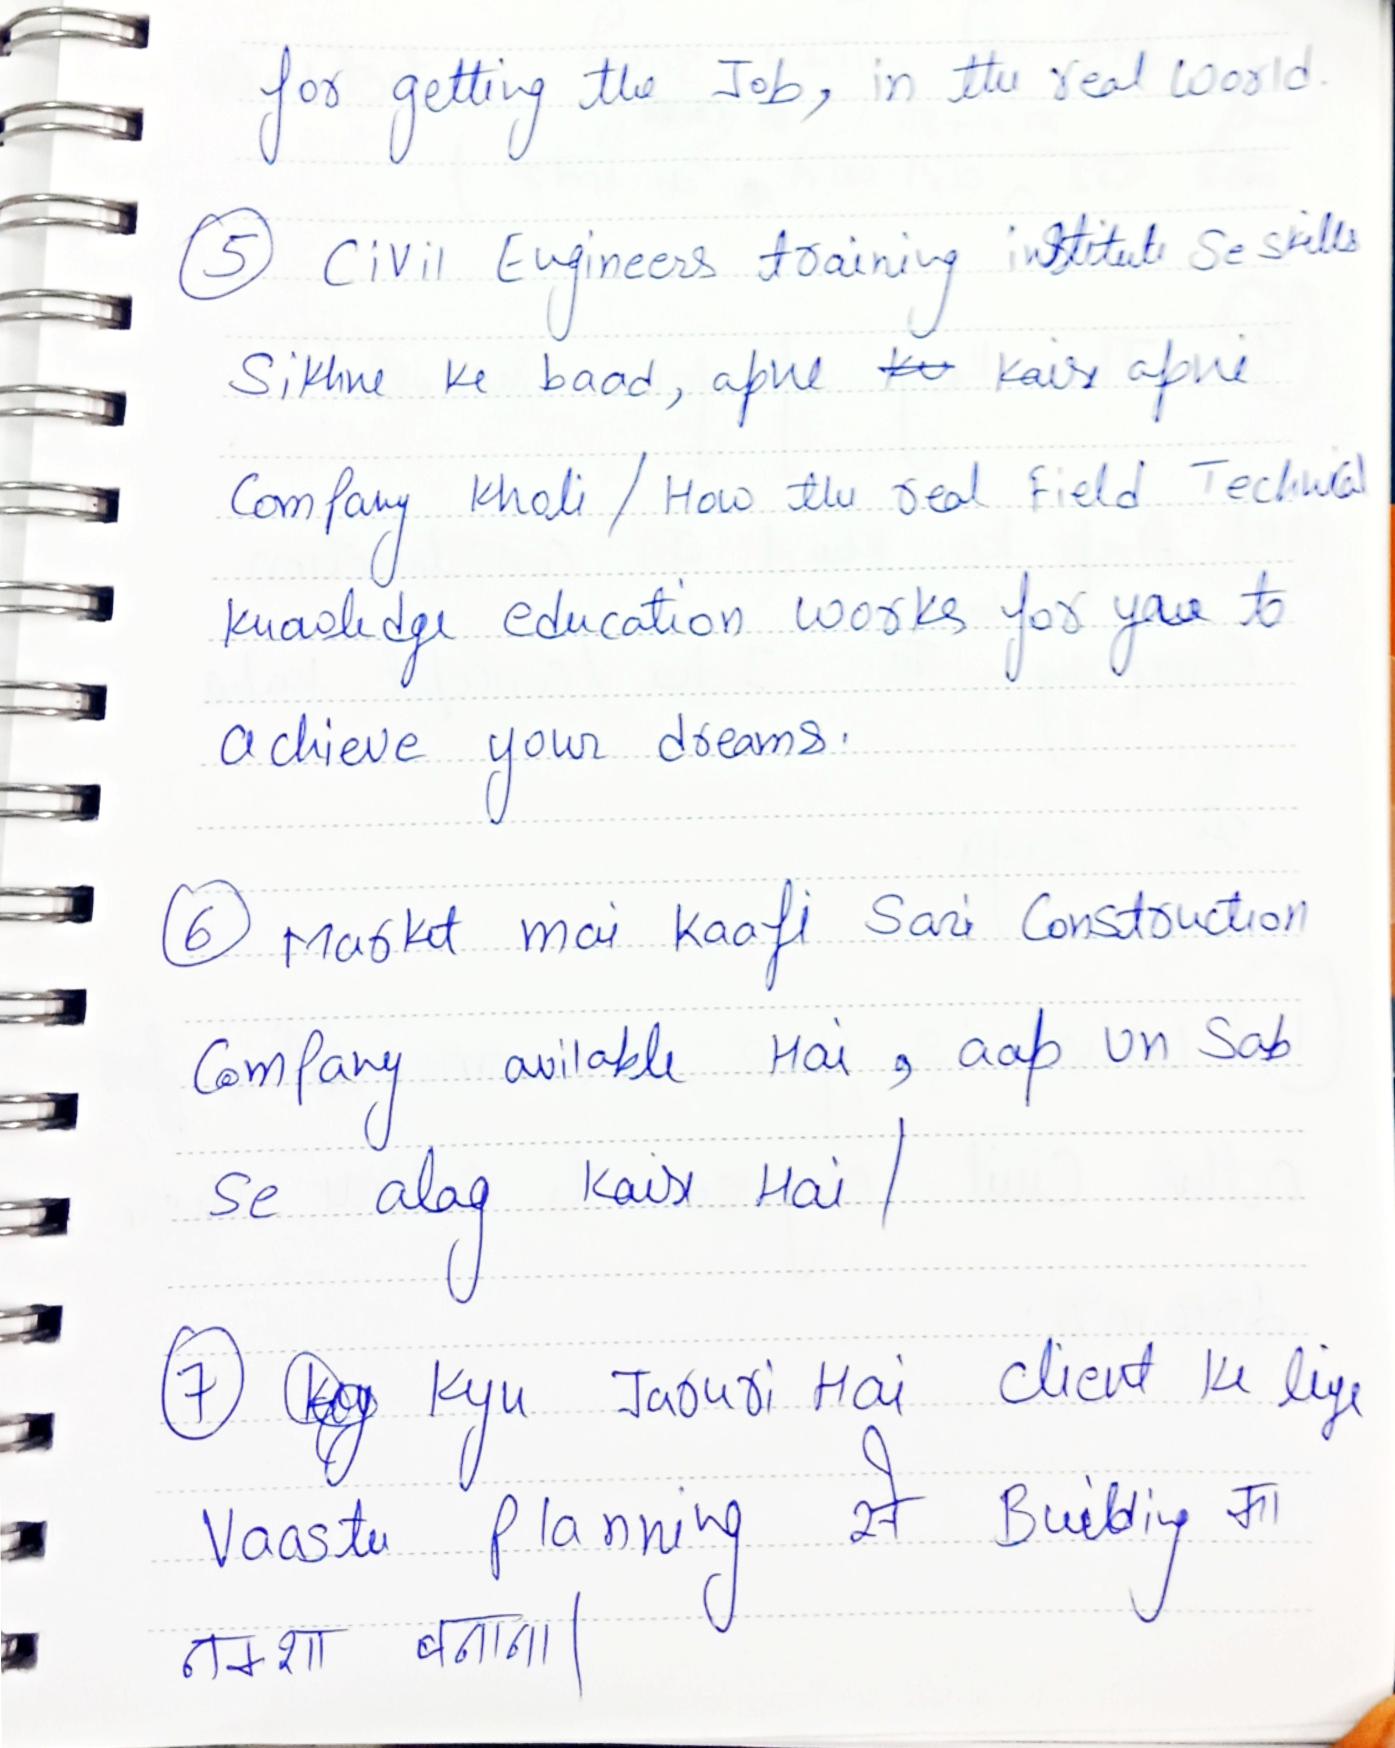 for getting the Job, in the real world.
5 Civil Engineers training institute Se skills
Sikhne ke baad, apne kaise apni
Company kholi / How the real Field Technical
knowledge education works for you to
achieve your dreams.
6 Market mai kaafi Sari Construction
Company avilable Hai, aap un Sab
se alag kaise Hai /
7 Kyu Jaruri Hai client ke liye
Vaastu Planning से Building का
नक्शा बनाना |